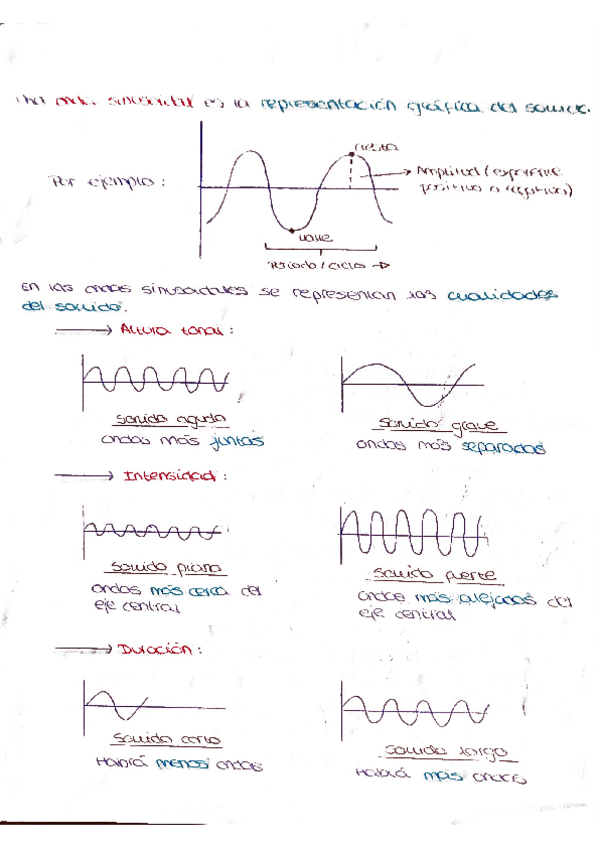 Una onda sinusoidal es la representación gráfica del sonido.
Por ejemplo:
cresta
Amplitud (expansive
positivo o negativo)
valle
Período / ciclo
En las ondas sinusoidales se representan las cualidades
del sonido.
Altura tonal:
Sonido agudo
ondas más juntas
Sonido grave
ondas más separadas
Intensidad:
Sonido piano
ondas más cerca del
eje central
Sonido fuerte
ondas más alejadas del
eje central
Duración:
Sonido corto
Habrá menos ondas
Sonido largo
Habrá más ondas